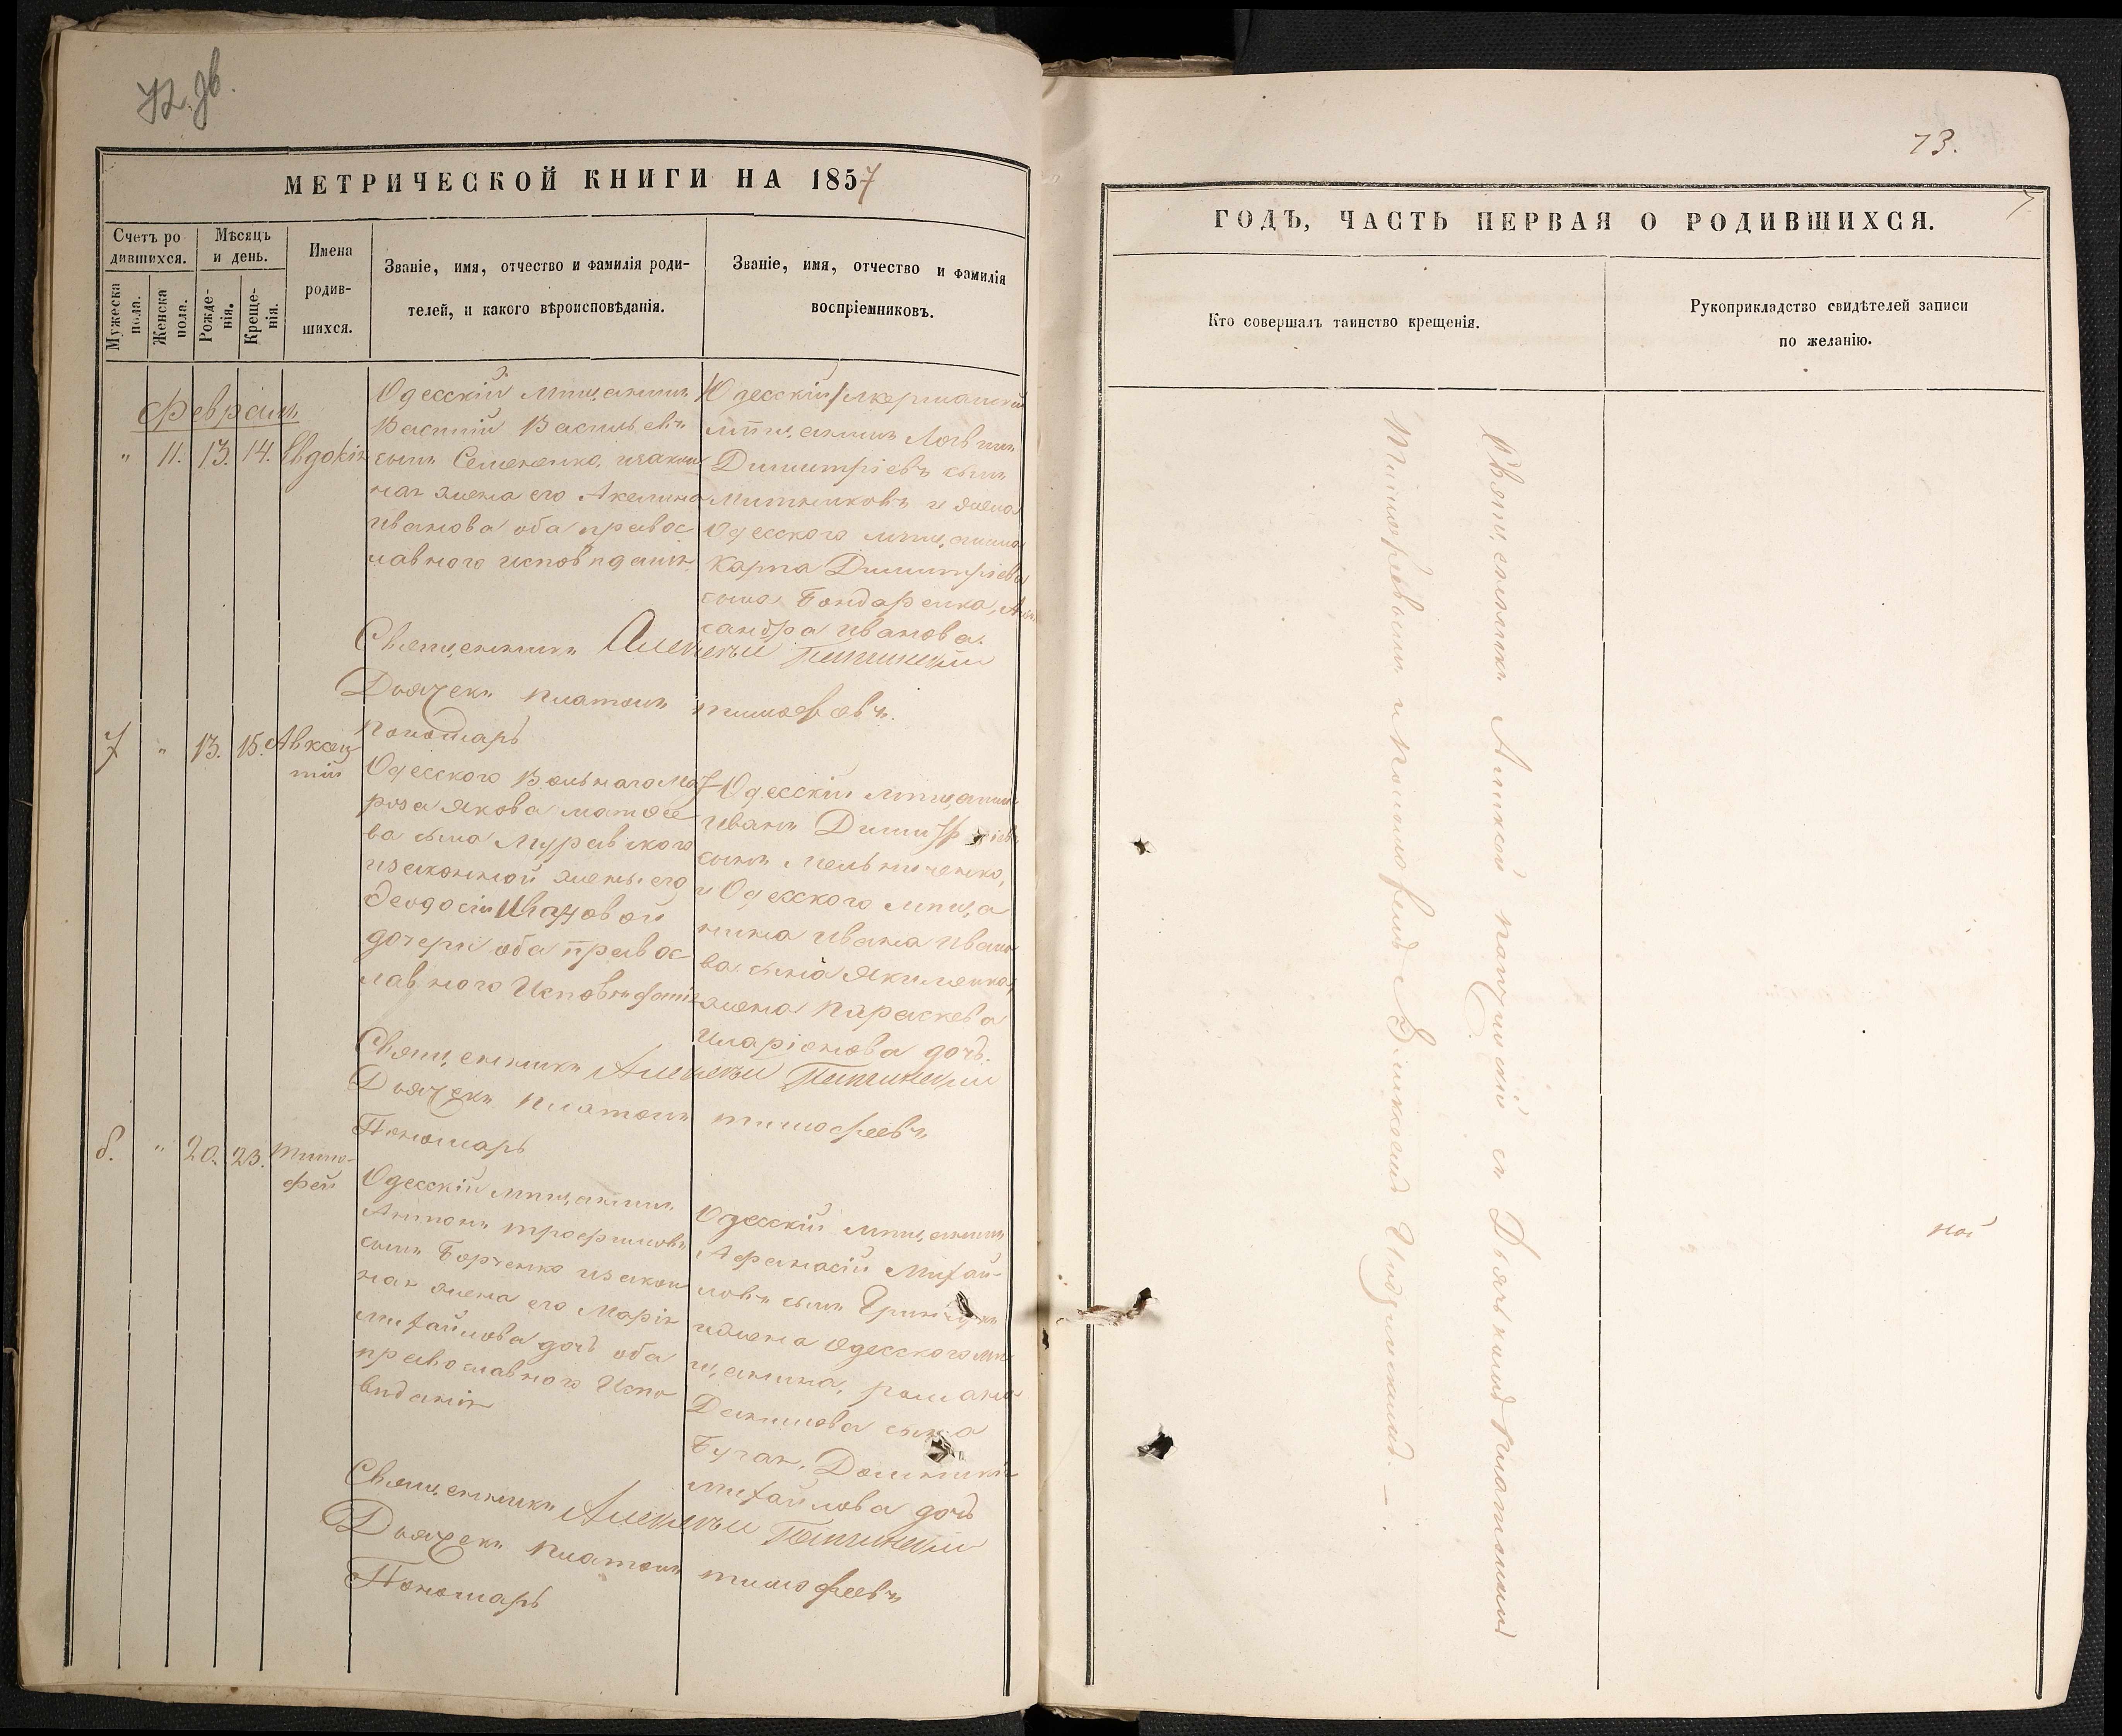 72 об.
МЕТРИЧЕСКОЙ КНИГИ НА 1857
Счетъ ро
дившихся.
Мужеска
пола.
Женска
пола.
Мѣсяцъ
и день.
Рожде-
нія.
Креще-
нія.
Имена
родив-
шихся.
Званіе, имя, отчество и фамилія роди-
телей, и какого вѣроисповѣданія.
Званіе, имя, отчество и фамилія
воспріемниковъ.
Февраль
" 11. 13. 14. Евдокія
Одесскій мѣщанинъ
Василій Васильевъ
сынъ Семененко, и закон
ная жена его Акелина
Иванова оба правос
лавного исповѣданія
Одесскій
мѣщанинъ Логвинъ
Димитріевъ сынъ
Митниковъ и жена
Одесского мѣщанина
Карпа Димитріева
сына Бондаренка, Алек
сандра Иванова.
Священникъ Алексѣй
Дьячекъ Платонъ Тимофеевъ.
Пономарь
7 " 13. 15. Авксен
тій
Одесского Вольнаго Мат
роза Якова Матвее
ва сына Муравского
и законной жены его
Феодосіи Ивановой
дочери оба правос
лавного Исповѣданія
Одесскій мѣщанинъ
Иванъ Димитріевъ
сынъ Мельниченко,
и Одесского мѣща
нина Ивана Ивано
ва сына Якименка,
жена Параскева
Иларіонова дочь.
Священникъ Алексѣй
Дьячекъ Платонъ Тимофеевъ
Пономарь
8. " 20. 23. Тимо-
фей
Одесскій мѣщанинъ
Антонъ Трофимовъ
сынъ Борченко и закон
ная жена его Марія
Михайлова дочь оба
православного Испо
виданія
Одесскій мѣщанинъ
Афанасій Михай-
ловъ сынъ
и жена Одесского мѣ
щанина, Романа
Данилова сына
Бугая, Домникія
Михайлова дочь
Священникъ Алексѣй
Дьячекъ Платонъ Тимофеевъ
Пономарь
73.
ГОДЪ, ЧАСТЬ ПЕРВАЯ О РОДИВШИХСЯ.
Кто совершалъ таинство крещенія.
Рукоприкладство свидѣтелей записи
по желанію.
Священникъ Алексѣй съ Дьячкомъ Платономъ
Тимофеевымъ и Пономаремъ
ной